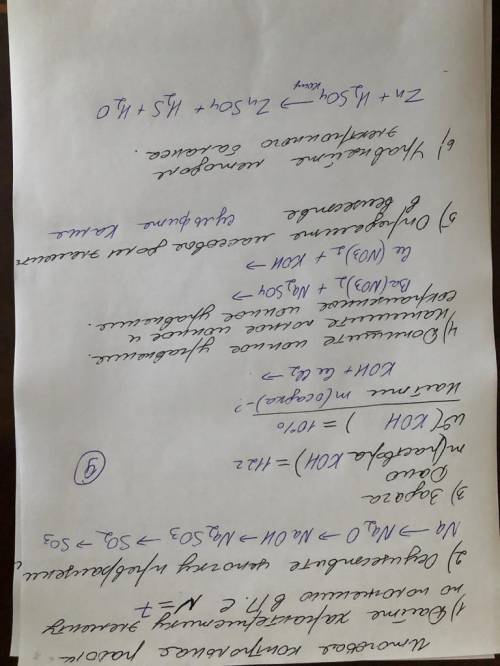 Итоговая контрольная работа
1) Дайте характеристику элементу
по положению в П.С N=7
2) Осуществите цепочку превращений
Na → Na2O → NaOH → Na2SO3 → SO2 → SO3
3) Задача
Дано
m(раствора KOH) = 112 г
ω(KOH) = 10%
Найти m(осадка) - ?
KOH + CuCl2 →
9
4) Допишите уравнение.
Напишите полное ионное и
сокращённое ионное уравнение.
Ba(NO3)2 + Na2SO4 →
Cu(NO3)2 + KOH →
5) Определите массовые доли элементов
в веществе сульфите калия
6) Уравняйте методом
электронного баланса.
Zn + H2SO4 конц → ZnSO4 + H2S + H2O